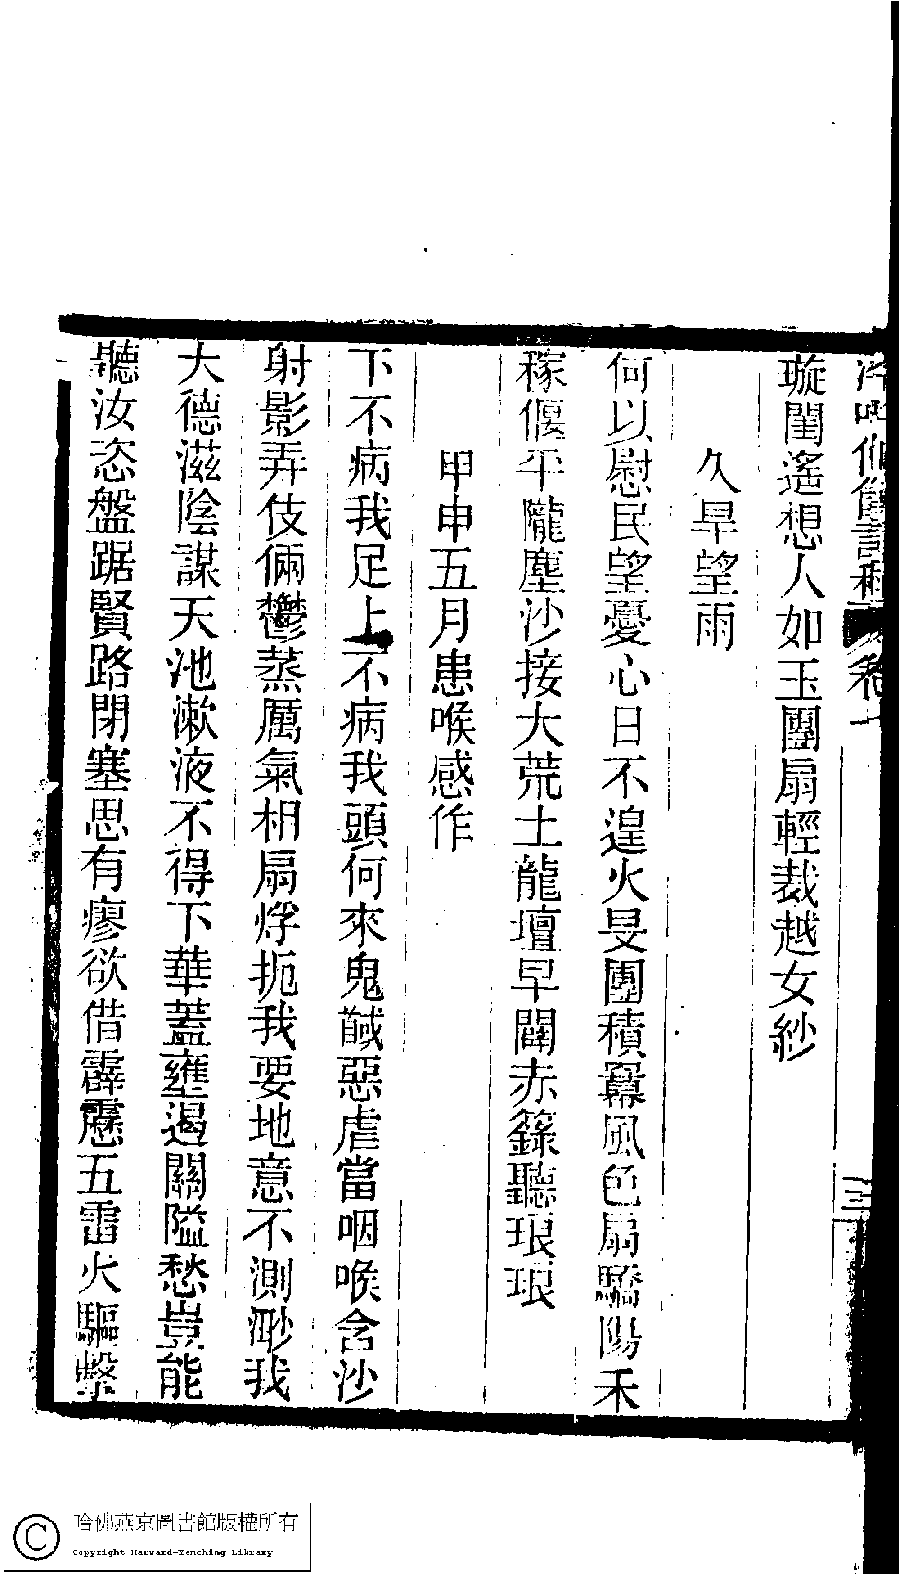 冷吟仙館詩稿 卷一 三
璇閨遙想人如玉團扇輕裁越女紗
久旱望雨
何以慰民望憂心日不遑火旻團積靄風色扇驕陽禾
稼偃平隴塵沙接大荒土龍壇早闢赤籙聽琅琅
甲申五月患喉感作
下不病我足上不病我頭何來鬼馘惡虐當咽喉含沙
射影弄伎倆鬱蒸厲氣相扇烰扼我要地意不測渺我
大德滋陰謀天池漱液不得下華蓋壅遏關隘愁豈能
聽汝恣盤踞賢路閉塞思有瘳欲借霹靂五雷火驅擊
哈佛燕京圖書館版權所有
Copyright Harvard-Yenching Library